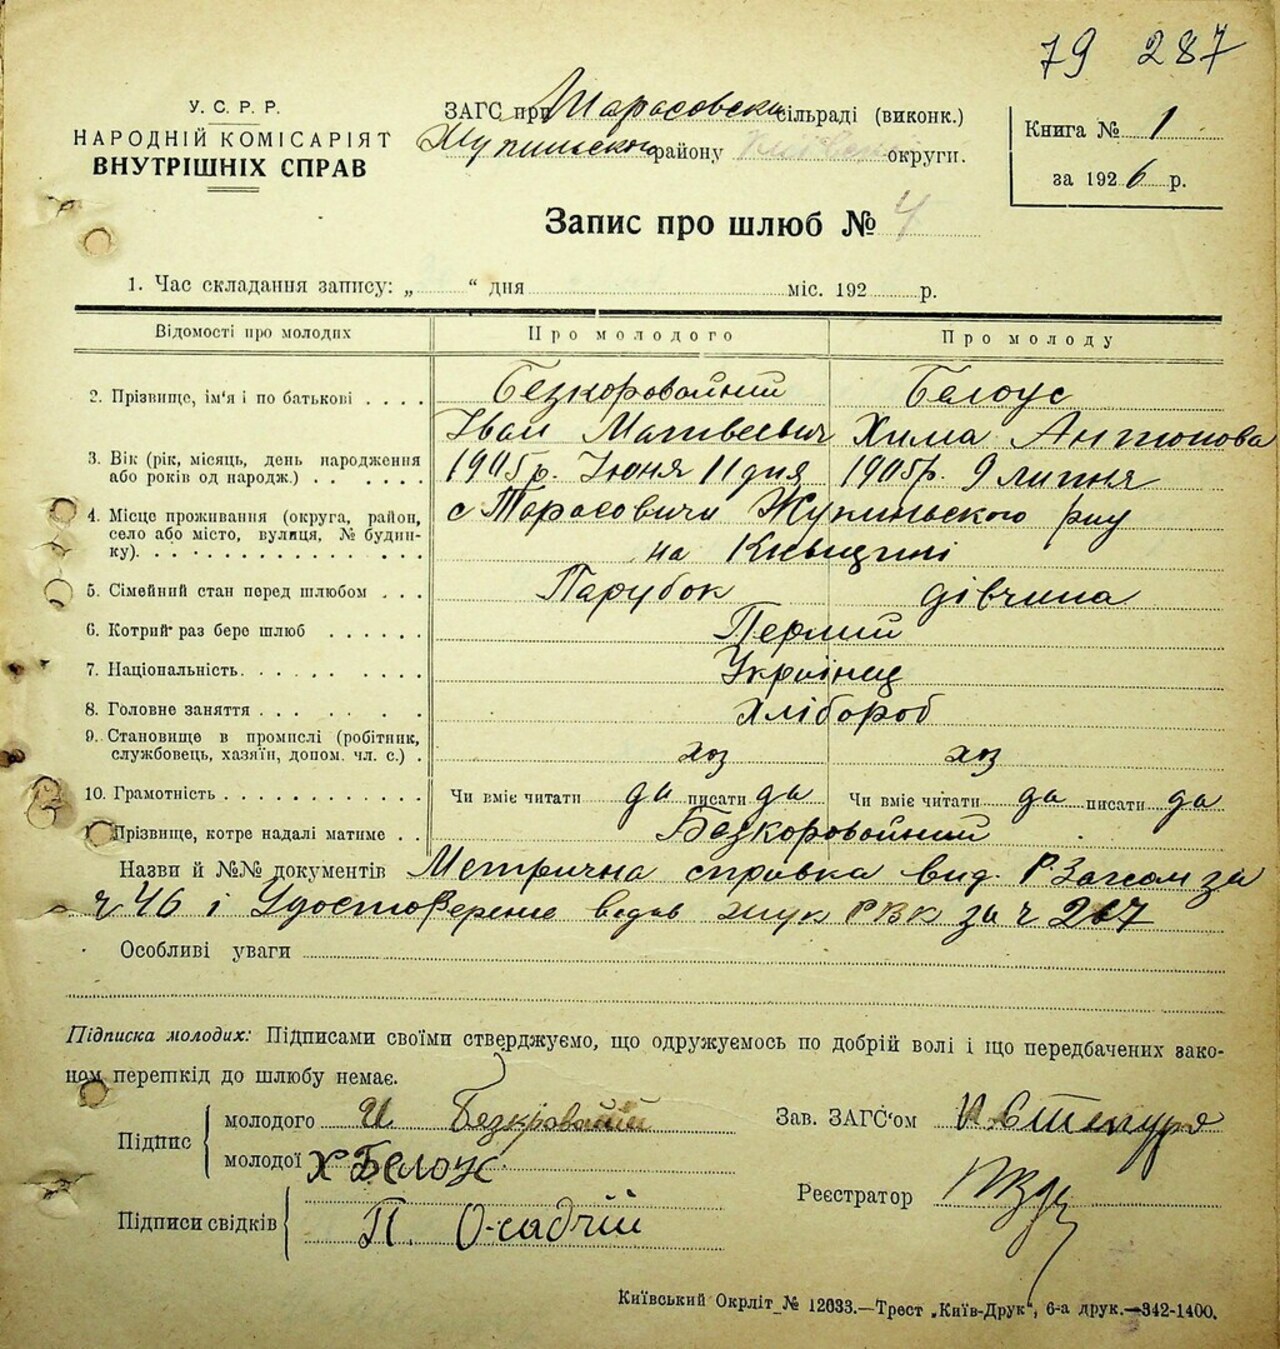 79 287
У. С. Р. Р.
НАРОДНІЙ КОМІСАРІЯТ
ВНУТРІШНІХ СПРАВ
ЗАГС при Тарасовской сільраді (виконк.)
Жукинського району Київської округи.
Книга № 1
за 1926 р.
Запис про шлюб № 4
1. Час складання запису: „ “ дня міс. 192 р.
Відомості про молодих Про молодого Про молоду
2. Прізвище, ім'я і по батькові Безкоровайний Белоус
Іван Матвеевич Хима Антонова
3. Вік (рік, місяць, день народження або років од народж.) 1905р. Июня 11 дня 1905р. 9 липня
4. Місце проживання (округа, район, село або місто, вулиця, № будинку) с Тарасовичи Жукиньского р-ну
на Київщині
5. Сімейний стан перед шлюбом Парубок дівчина
6. Котрий раз бере шлюб Перший
7. Національність Українец
8. Головне заняття Хлібороб
9. Становище в промислі (робітник, службовець, хазяїн, допом. чл. с.) хоз хоз
10. Грамотність Чи вміє читати да писати да Чи вміє читати да писати да
Прізвище, котре надалі матиме Безкоровайний
Назви й №№ документів Метрична справка вид. Р Загсом за
ч 46 і Удостоверение видав жук РВК за ч 267
Особливі уваги
Підписка молодих: Підписами своїми стверджуємо, що одружуємось по добрій волі і що передбачених зако-
ном перешкід до шлюбу немає.
Підпис
молодого И. Безкровайній
молодої Х Белоус
Підписи свідків П. Осадчій
Зав. ЗАГС'ом
Реєстратор
Київський Окрліт № 12033.—Трест „Київ-Друк“, 6-а друк.—342-1400.